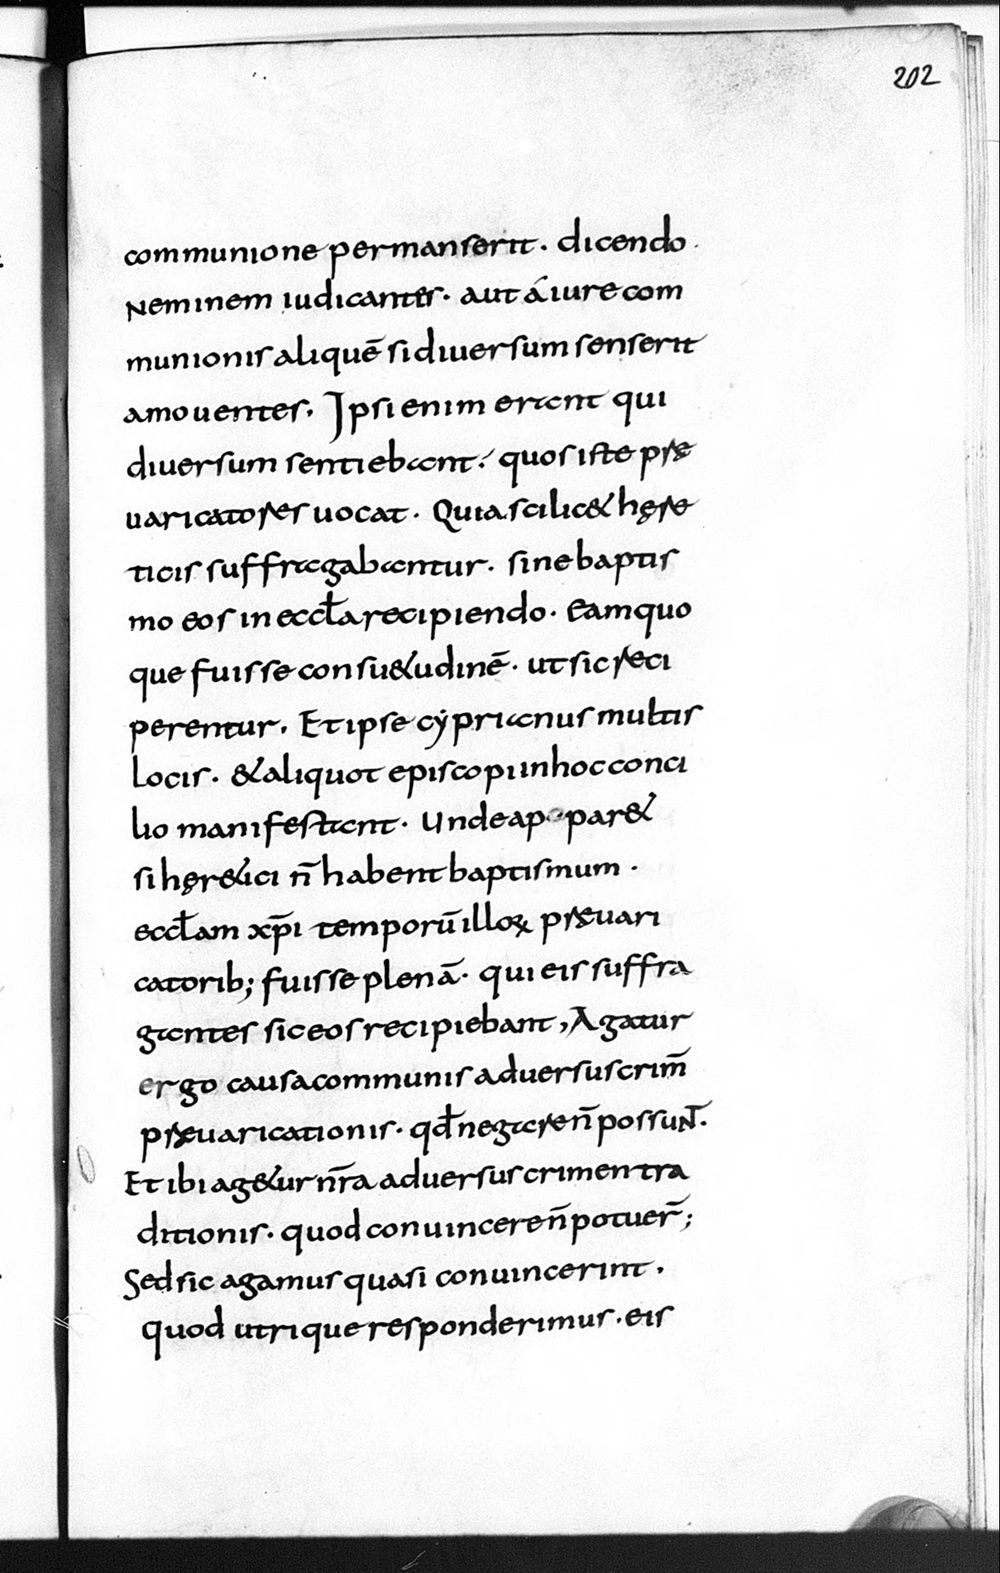 202
communione permanserit. dicendo.
Neminem iudicantes. aut á iure com
munionis aliquē si diuersum senserit
amouentes. Ipsi enim erant qui
diuersum sentiebant. quos iste præ
uaricatores uocat. Quia scilic& hęre
ticis suffragabantur. sine baptis
mo eos in eccła recipiendo. Eamquo
que fuisse consu&udinē. ut sic reci
perentur. Et ipse cẏprianus multis
locis. & aliquot episcopi in hoc conci
lio manifestant. Unde ap par&
si hęr&ici n̄ habent baptismum.
eccłam xp̄i temporū illoꝝ præuari
catorib; fuisse plenā. qui eis suffra
gantes sic eos recipiebant, Agatur
ergo causa communis aduersus crim̄
præuaricationis. qđ negare n̄ possuɴᴛ.
Et ibi ag&ur nr̄a aduersus crimen tra
ditionis. quod conuincere n̄ potuer̄;
Sed sic agamus quasi conuincerint.
quod utrique responderimus. eis